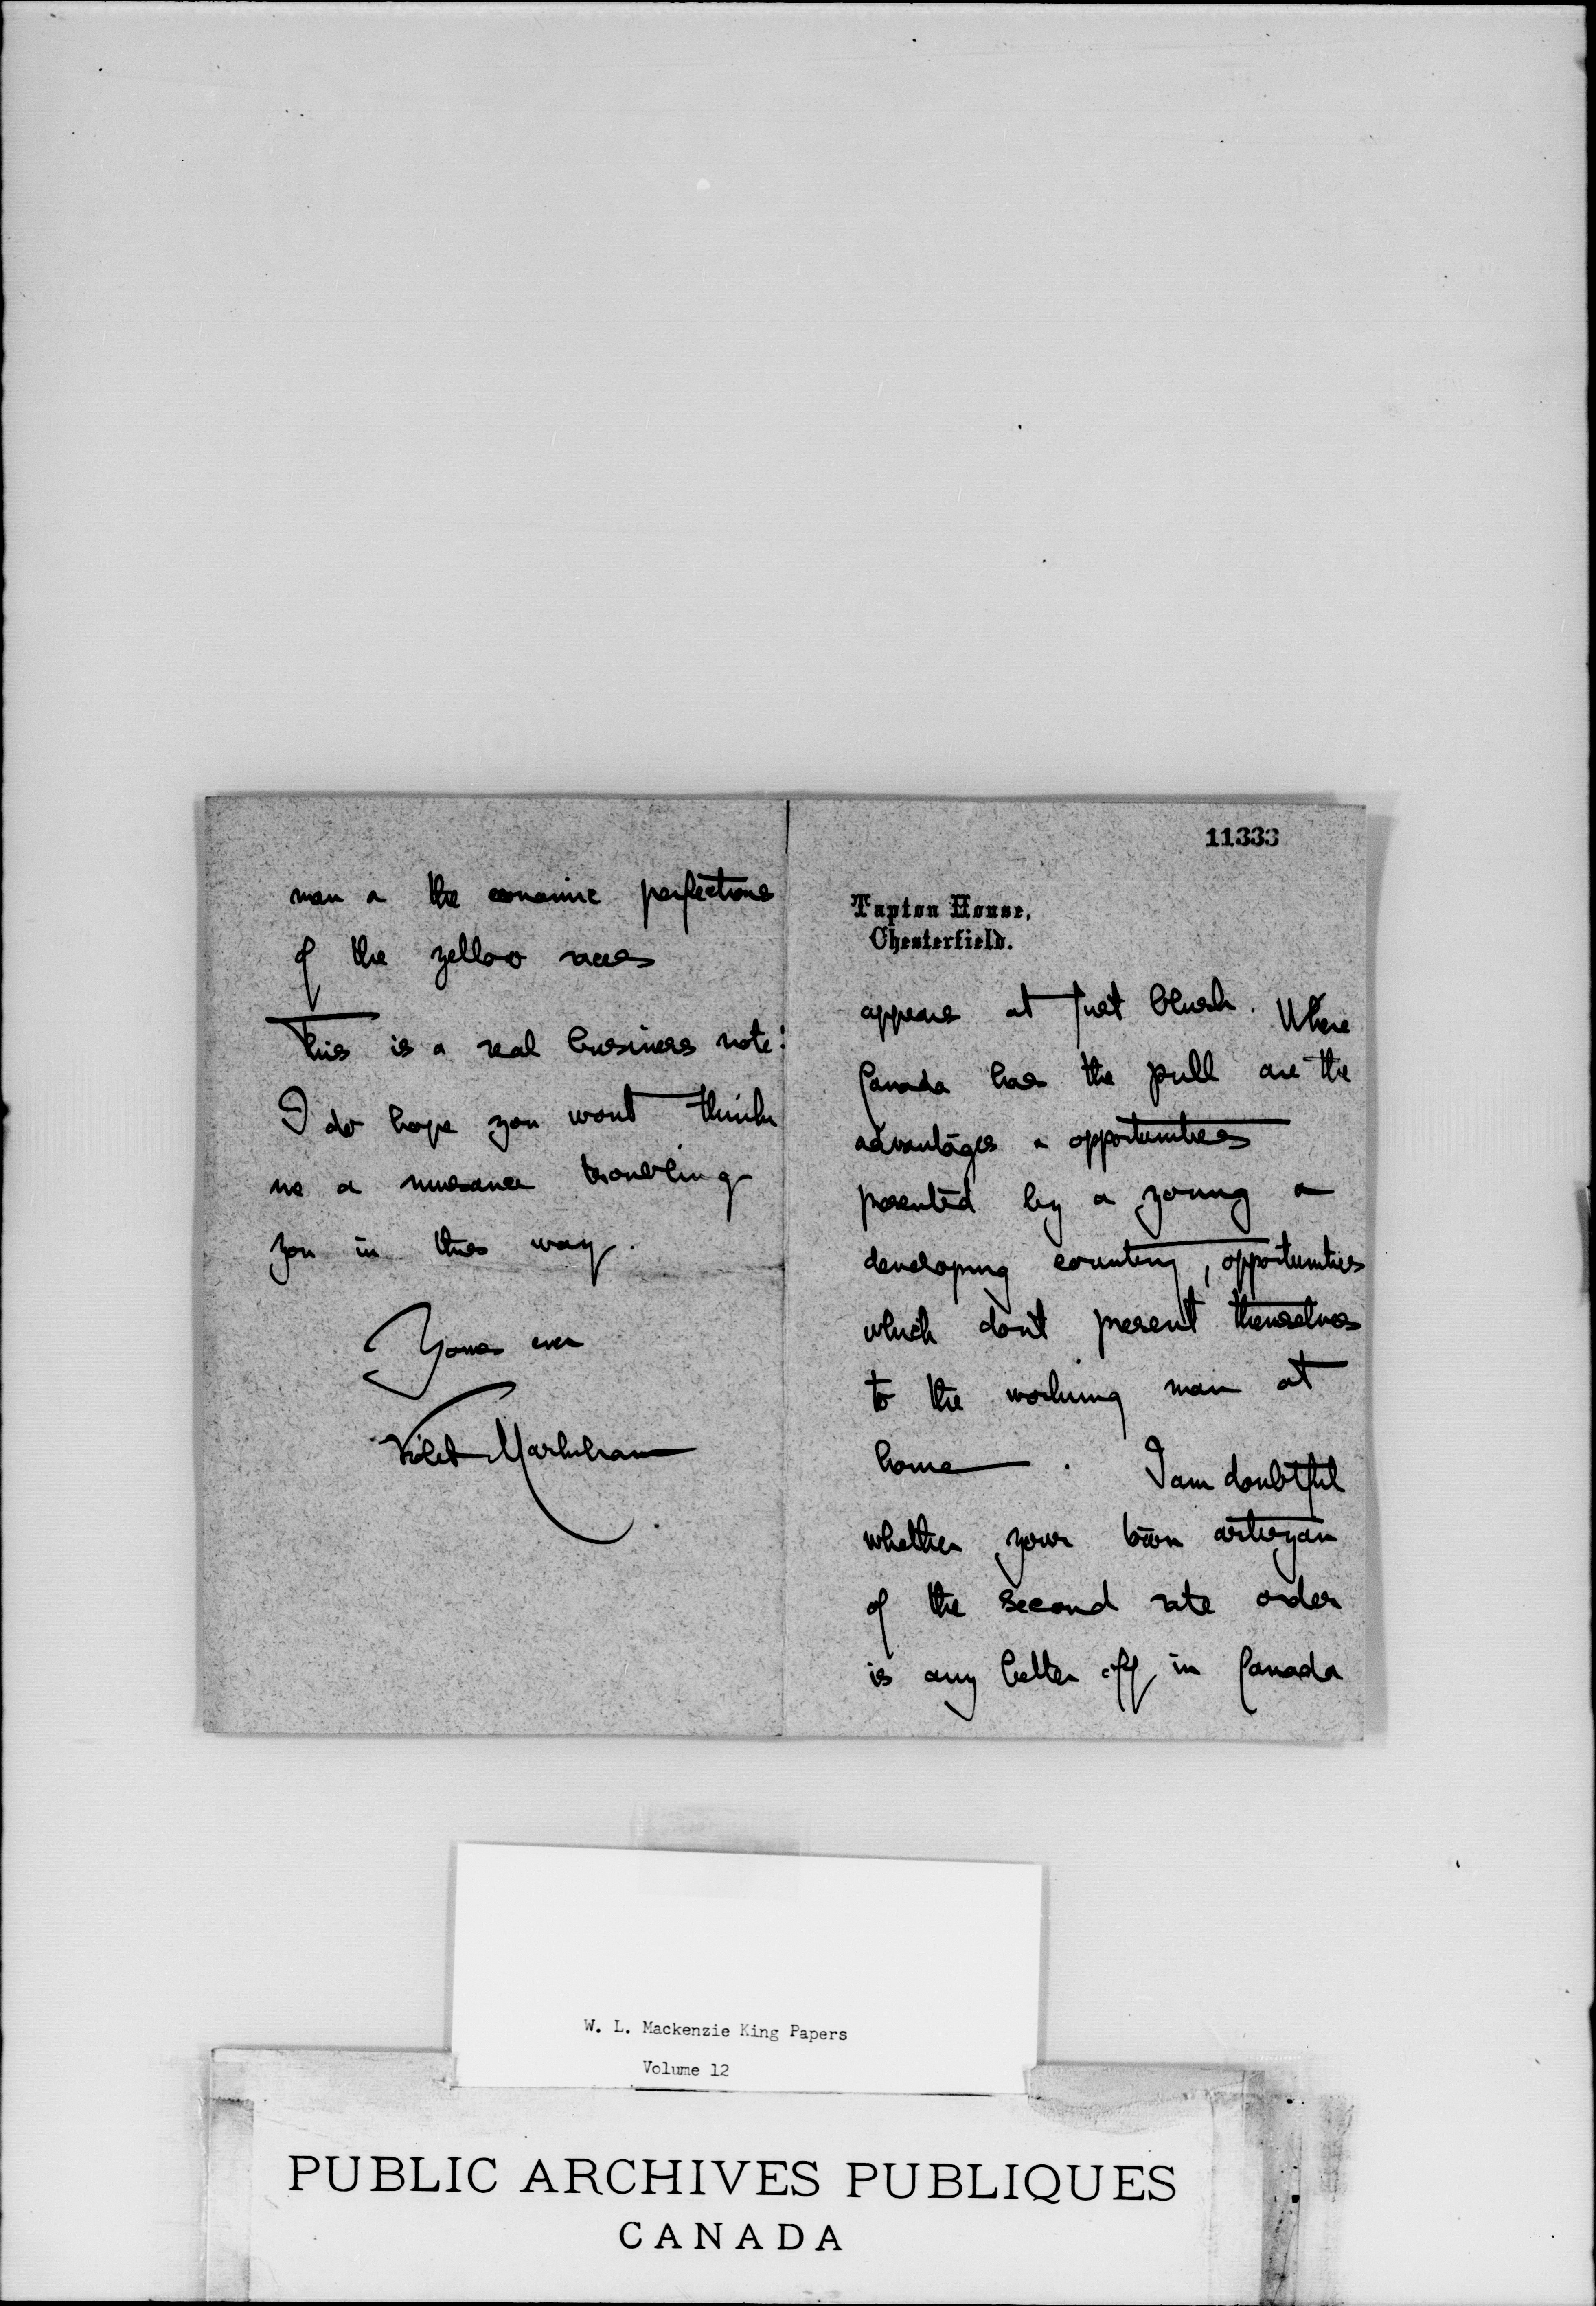 man a the economic perfections
of the yellow races
This is a real business note!
I do hope you wont think
me a nuisance troubling
you in this way.
Yours ever
Violet Markham
11333
Tapton House,
Chesterfield.
appears at first blush. Where
Canada has the pull are the
advantages a opportunities
presented by a young a
developing country, opportunities
which don't present themselves
to the working man at
home. I am doubtful
whether your town artizan
of the second rate order
is any better off in Canada
W. L. Mackenzie King Papers
Volume 12
PUBLIC ARCHIVES PUBLIQUES
CANADA